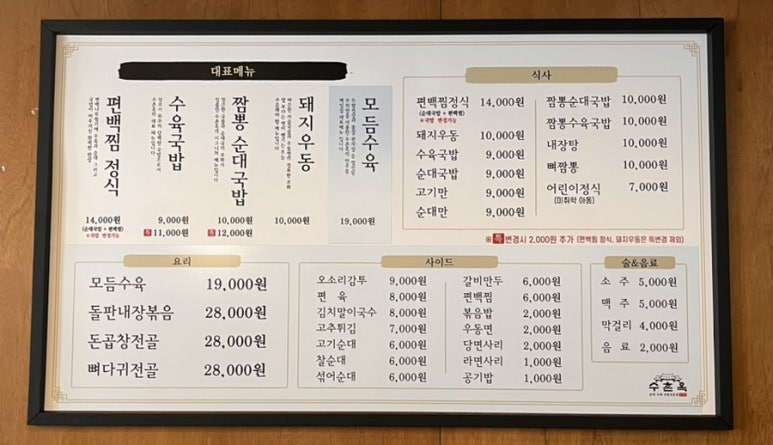 대표메뉴
편백찜 정식
14,000원
(순대국밥 + 편백찜)
※국밥 변경가능
수육국밥
9,000원
특 11,000원
짬뽕 순대국밥
10,000원
특 12,000원
돼지우동
10,000원
모듬수육
19,000원
식사
편백찜정식 14,000원
(순대국밥 + 편백찜)
※국밥 변경가능
돼지우동 10,000원
수육국밥 9,000원
순대국밥 9,000원
고기만 9,000원
순대만 9,000원
짬뽕순대국밥 10,000원
짬뽕수육국밥 10,000원
내장탕 10,000원
뼈짬뽕 10,000원
어린이정식 7,000원
(미취학 아동)
※ 특 변경시 2,000원 추가 (편백찜 정식, 돼지우동은 특변경 제외)
요리
모듬수육 19,000원
돌판내장볶음 28,000원
돈곱창전골 28,000원
뼈다귀전골 28,000원
사이드
오소리감투 9,000원
편 육 8,000원
김치말이국수 8,000원
고추튀김 7,000원
고기순대 6,000원
찰순대 6,000원
섞어순대 6,000원
갈비만두 6,000원
편백찜 6,000원
볶음밥 2,000원
우동면 2,000원
당면사리 2,000원
라면사리 1,000원
공기밥 1,000원
술&음료
소 주 5,000원
맥 주 5,000원
막걸리 4,000원
음 료 2,000원
수촌옥